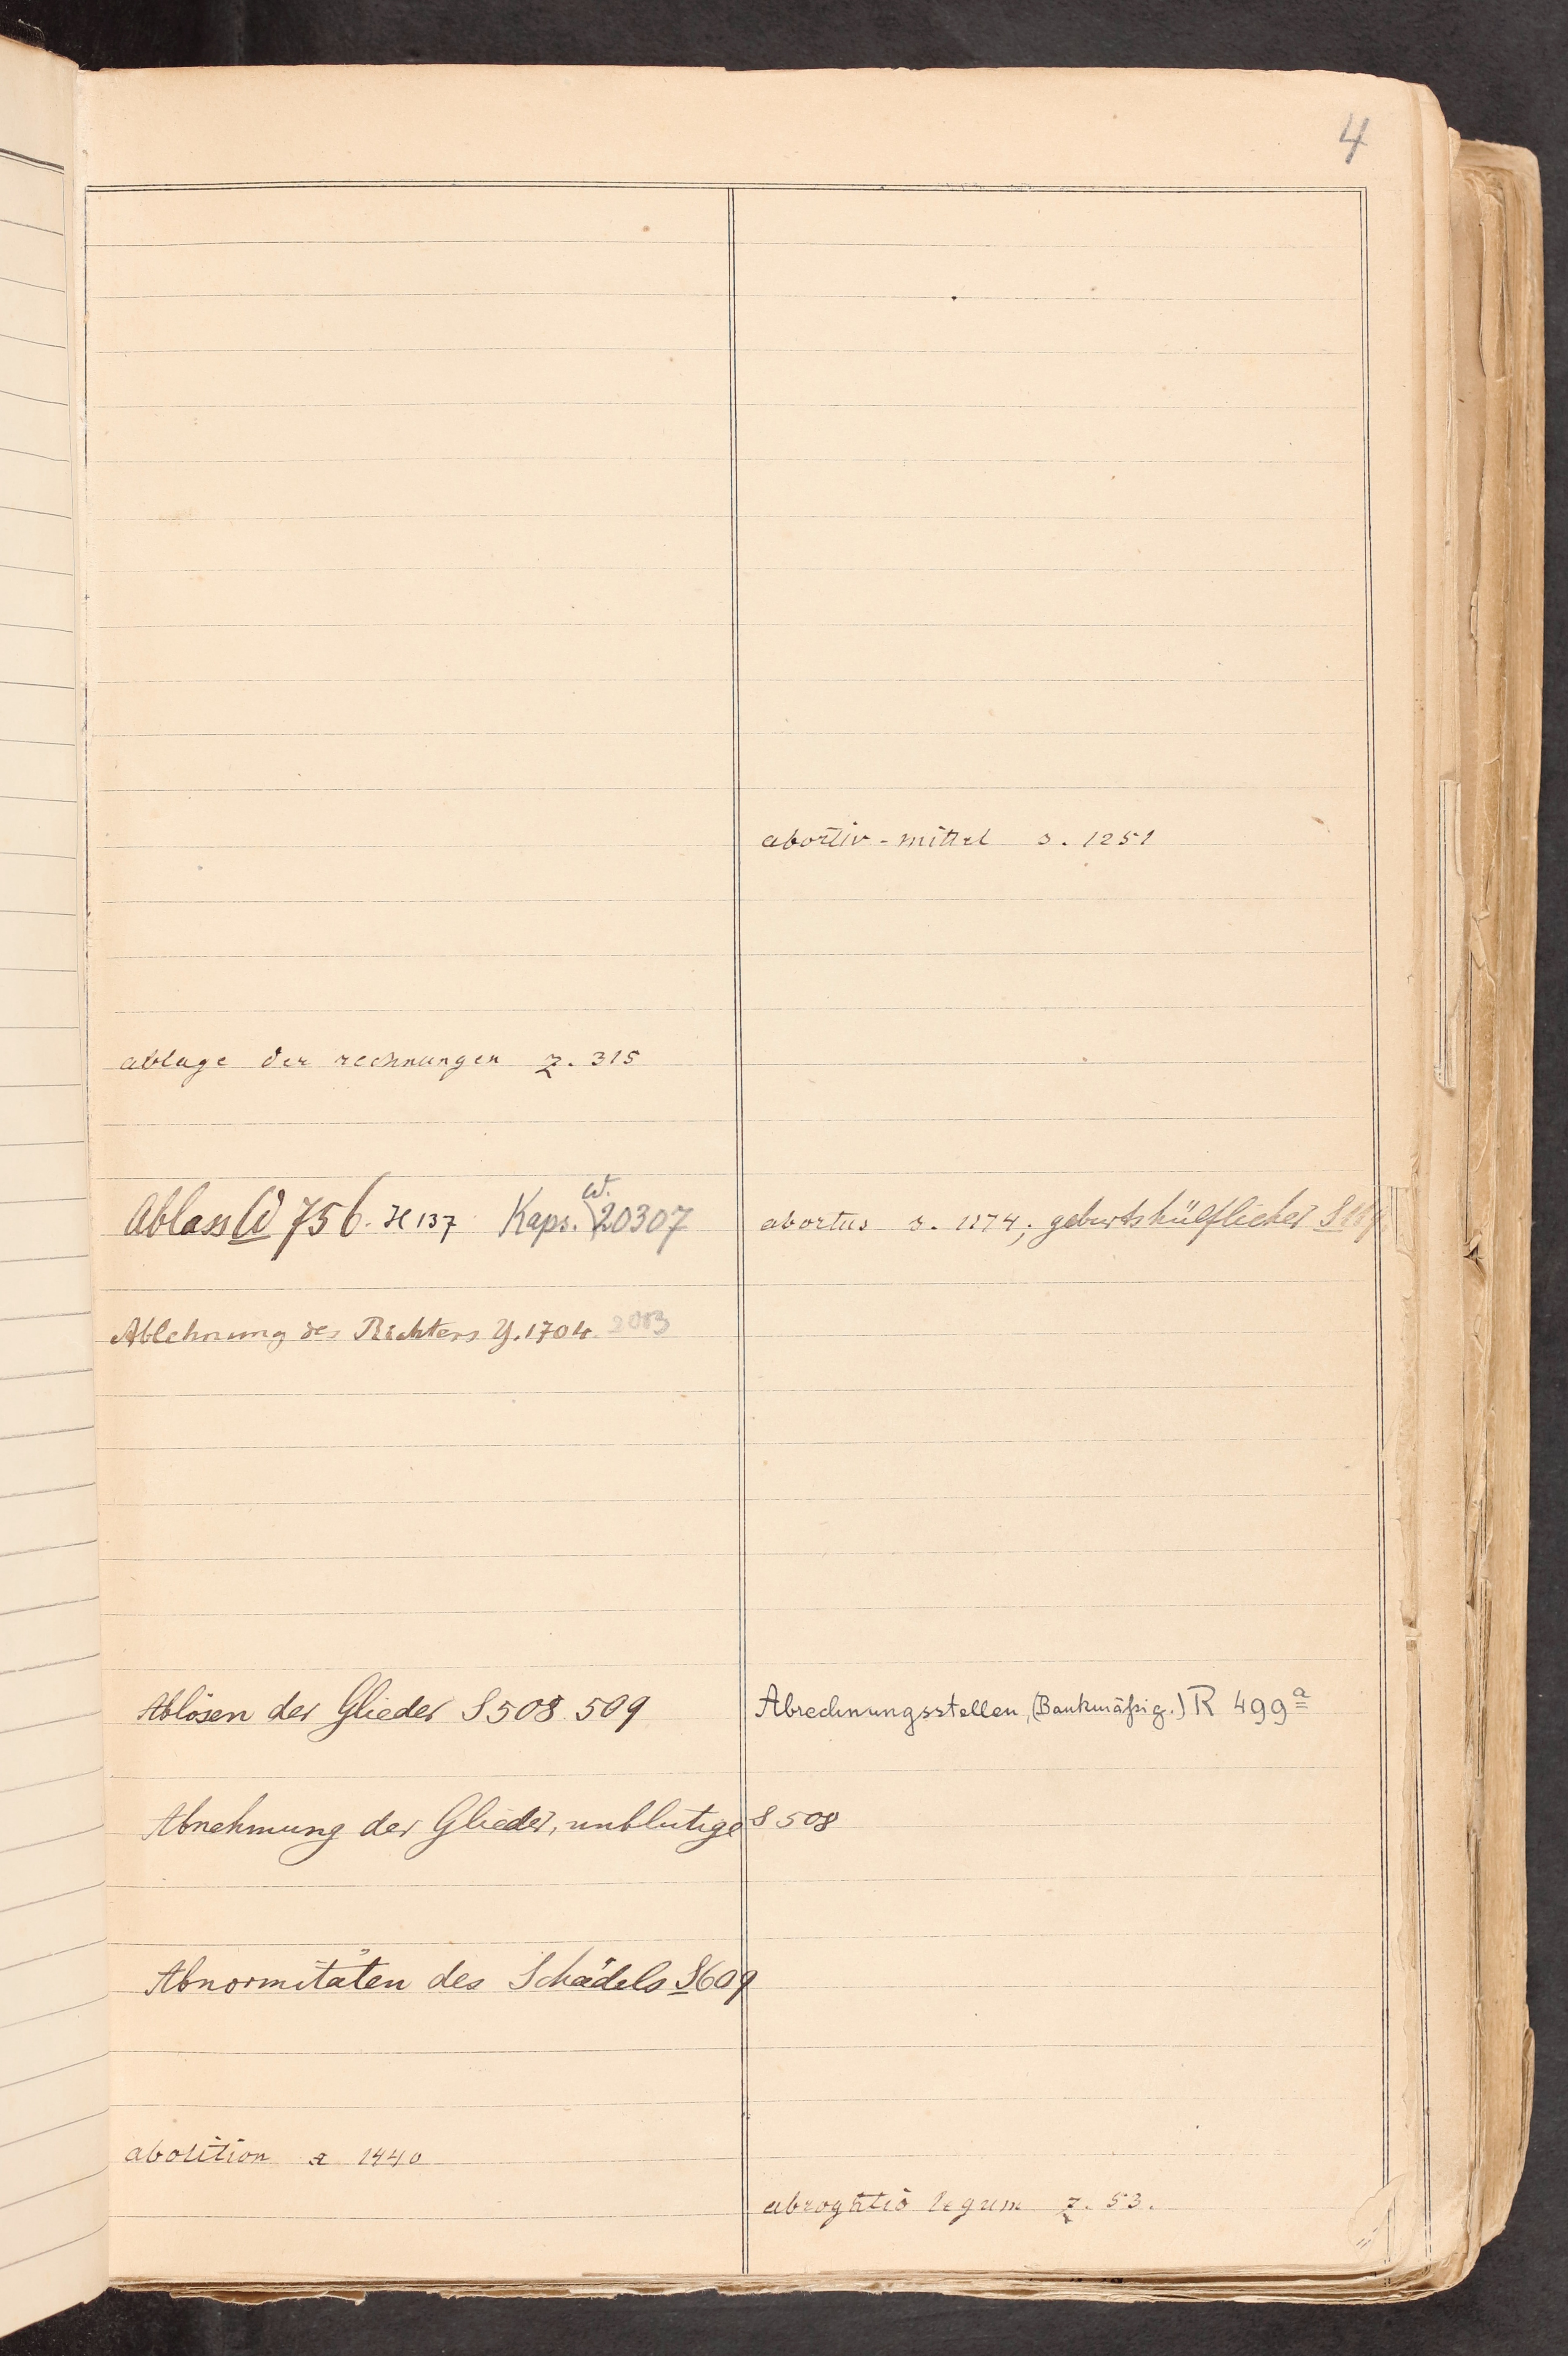 4
ablage der rechnungen z. 315
Ablass W 756. H 137 Kaps. W. 20307
Ablehnung des Richters Y. 1704. 2003
Ablösen der Glieder S 508. 509
Abnehmung der Glieder, unblutige S 508
Abnormitäten des Schädels S 609
abolition a 1440
abortiv-mittel s. 1251
abortus s. 1174; geburtshülflicher
Abrechnungsstellen, (Bankmäßig.) R 499a
abrogatio legum z. 53.